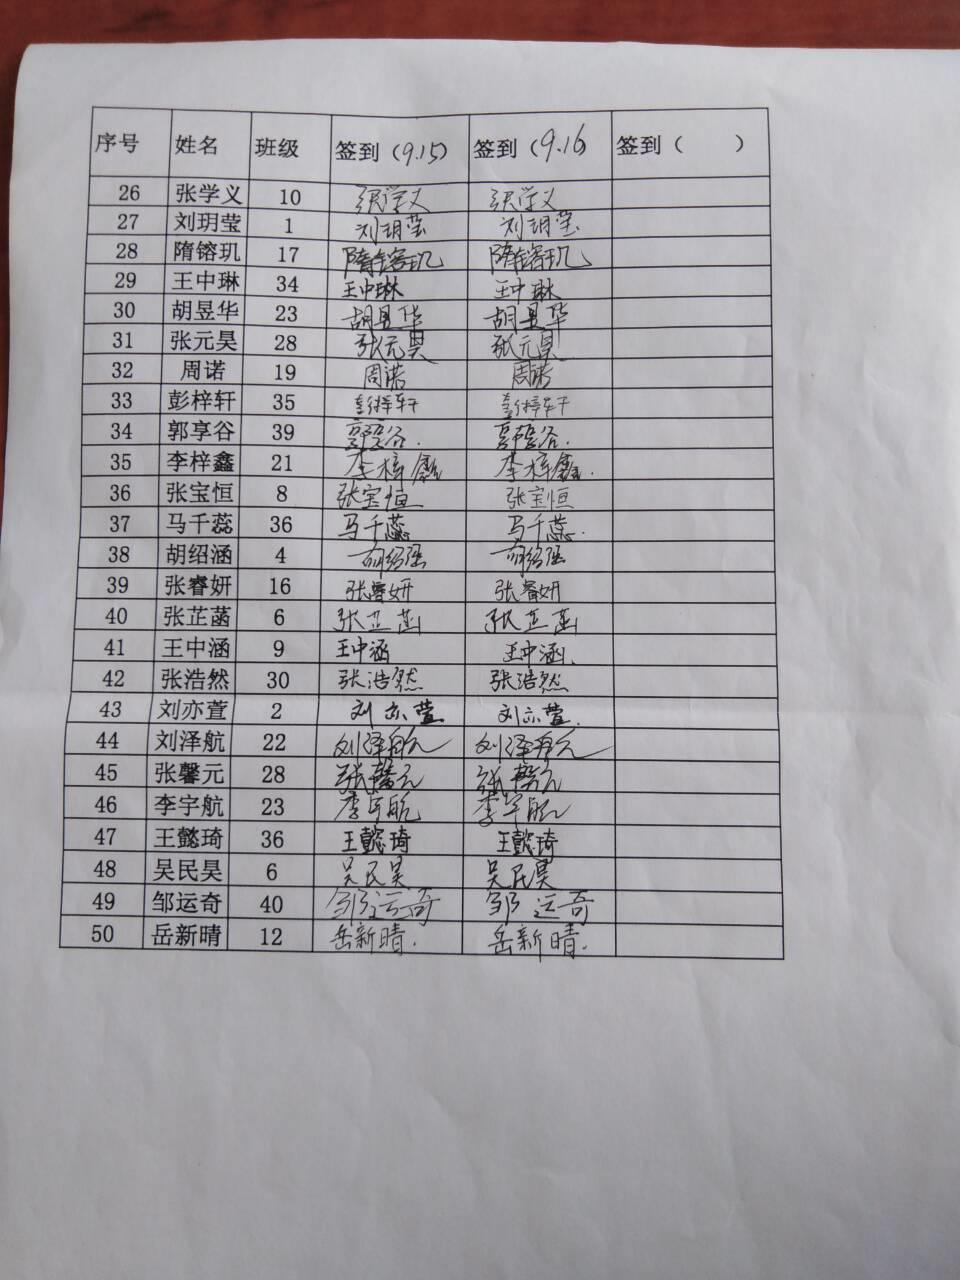 序号 姓名 班级 签到（9.15） 签到（9.16） 签到（ ）
26 张学义 10 张学义 张学义
27 刘玥莹 1 刘玥莹 刘玥莹
28 隋镕玑 17 隋镕玑 隋镕玑
29 王中琳 34 王中琳 王中琳
30 胡昱华 23 胡昱华 胡昱华
31 张元昊 28 张元昊 张元昊
32 周诺 19 周诺 周诺
33 彭梓轩 35 彭梓轩 彭梓轩
34 郭享谷 39 郭享谷. 郭享谷.
35 李梓鑫 21 李梓鑫 李梓鑫.
36 张宝恒 8 张宝恒 张宝恒
37 马千蕊 36 马千蕊 马千蕊.
38 胡绍涵 4 胡绍涵 胡绍涵
39 张睿妍 16 张睿妍 张睿妍
40 张芷菡 6 张芷菡 张芷菡
41 王中涵 9 王中涵 王中涵.
42 张浩然 30 张浩然 张浩然
43 刘亦萱 2 刘亦萱 刘亦萱.
44 刘泽航 22 刘泽航 刘泽航
45 张馨元 28 张馨元 张馨元
46 李宇航 23 李宇航 李宇航
47 王懿琦 36 王懿琦 王懿琦
48 吴民昊 6 吴民昊 吴民昊
49 邹运奇 40 邹运奇 邹运奇
50 岳新晴 12 岳新晴. 岳新晴.